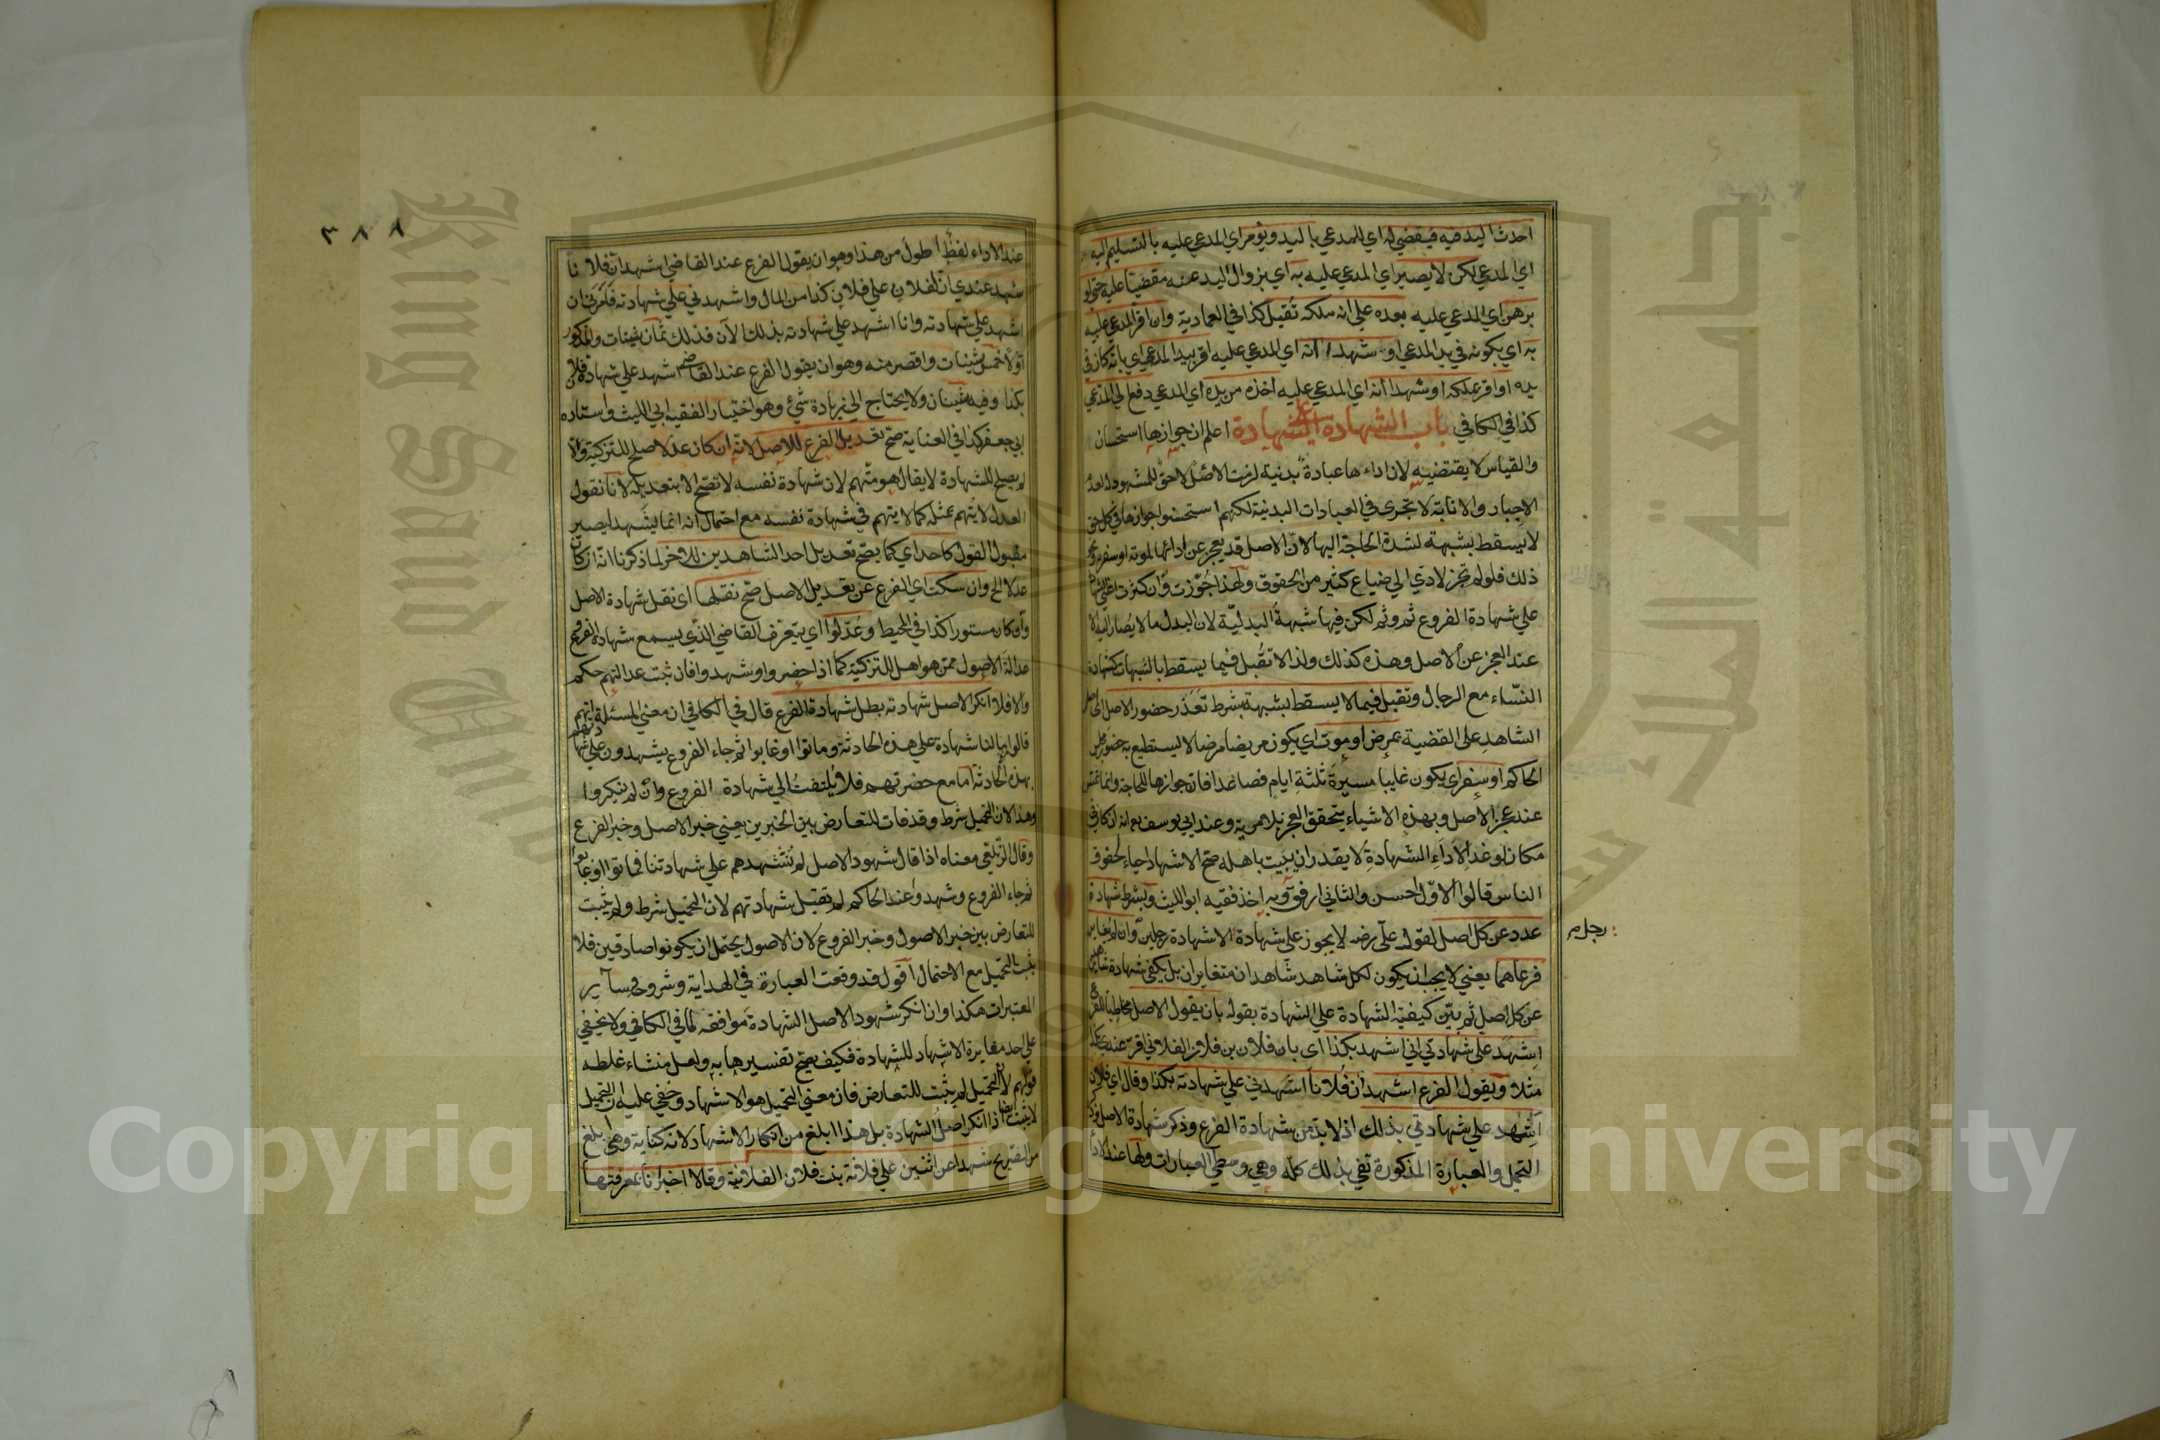 احدث اليد فيه فيقضي له اي للمدعي باليد ويؤمر اي المدعي عليه بالتسليم اليه
اي المدعي لكن لا يصير اي المدعي عليه به اي بزوال اليد عنه مقضيا عليه حتى لو
برهن اي المدعي عليه بعده علي انه ملكه تقبل كذا في العمادية وان اقر المدعي عليه
به اي بكونه في يد المدعي او شهدا انه اي المدعي عليه اقر بيد المدعي اي بانه كان في
يده او اقر بملكه او شهدا انه اي المدعي عليه اخذه من يده اي المدعي دفع الي المدعي
كذا في الكافي باب الشهادة علي الشهادة اعلم ان جوازها استحسان
والقياس لا يقتضيه لان اداءها عبادة بدنية لزمت الاصل لا حق للمشهود له لعدم
الاجبار والانابة لا تجري في العبادات البدنية لكنهم استحسنوا جوازها في كل حق
لا يسقط بشبهة لشدة الحاجة اليها لان الاصل قد يعجز عن ادائها لموته او سفره ونحو
ذلك فلو لم تجز لادي الي ضياع كثير من الحقوق ولهذا جوزت وان كثرت اعني الشهادة
علي شهادة الفروع ثم وثم لكن فيها شبهة البدلية لان البدل ما لا يصار اليه الا
عند العجز عن الاصل وهذه كذلك ولذا لا تقبل فيما يسقط بالشبهات كشهادة
النساء مع الرجال وتقبل فيما لا يسقط بشبهة بشرط تعذر حضور الاصل اي
الشاهد على القضية بمرض او موت اي يكون مريضا مرضا لا يستطيع به حضور مجلس
الحاكم او سفر اي يكون غايبا مسيرة ثلثة ايام فصاعدا فان جوازها للحاجة وانما تمس
عند عجز الاصل وبهذه الاشياء يتحقق العجز بلا مرية وعند ابي يوسف رح انه ان كان في
مكان لو غدا لاداء الشهادة لا يقدر ان يبيت باهله صح الاشهاد احياء لحقوق
الناس قالوا الاول احسن والثاني ارفق وبه اخذ فقيه ابو الليث وبشرط شهادة
عدد عن كل اصل لقول علي رض لا يجوز علي شهادة الا شهادة رجلين وان لم يتغاير
: رجل م
فرعاهما يعني لا يجب ان يكون لكل شاهد شاهدان متغايران بل يكفي شهادة شاهدين
عن كل اصل ثم بين كيفية الشهادة علي الشهادة بقوله بان يقول الاصل مخاطبا للفرع
اشهد علي شهادتي اني اشهد بكذا اي بان فلان بن فلان الفلاني اقر عندي بكذا
مثلا ويقول الفرع اشهد ان فلانا اشهدني علي شهادته بكذا وقال اي فلان
اشهد علي شهادتي بذلك اذ لا بد من شهادة الفرع وذكر شهادة الاصل وذكر
التحمل والعبارة المذكورة تفي بذلك كله وهي وسطي العبارات ولها عند الاداء
٣٨٨
عند الاداء لفظ اطول من هذا وهو ان يقول الفرع عند القاضي اشهد ان فلانا
شهد عندي ان لفلان علي فلان كذا من المال واشهدني علي شهادته فامرني ان
اشهد علي شهادته وانا اشهد علي شهادته بذلك الآن فذلك ثمان شينات والمذكور
اولا خمس شينات واقصر منه وهو ان يقول الفرع عند القاضي اشهد علي شهادة فلان
بكذا وفيه شينان ولا يحتاج الي زيادة شئ وهو اختيار الفقيه ابي الليث واستاده
ابي جعفر كذا في العناية صح تعديل الفرع للاصل لانه ان كان عدلا صلح للتزكية والا
لم يصلح للشهادة لا يقال هو متهم لان شهادة نفسه لا تصح الا بتعديله لانا نقول
العدل لا يتهم بمثله كما لا يتهم في شهادة نفسه مع احتمال انه انما يشهد ليصير
مقبول القول كاحد اي كما يصح تعديل احد الشاهدين للاخر لما ذكرنا انه ان كان
عدلا الخ وان سكت اي الفرع عن تعديل الاصل صح نقلها اي نقل شهادة الاصل
وان كان مستورا كذا في المحيط وعدلوا اي يتعرف القاضي الذي يسمع شهادة الفروع
عدالة الاصول ممن هو اهل للتزكية كما اذا حضروا وشهدوا فان ثبت عدالتهم حكم
والا فلا انكر الاصل شهادته بطل شهادة الفرع قال في الكافي ان معني المسئلة انهم
قالوا ما لنا شهادة علي هذه الحادثة وماتوا او غابوا ثم جاء الفروع يشهدون علي شهادتهم
بهذه الحادثة اما مع حضرتهم فلا يلتفت الي شهادة الفروع وان لم ينكروا
وهذا لان التحميل شرط وقد فات للتعارض بين الخبرين يعني خبر الاصل وخبر الفرع
وقال الزيلعي معناه اذا قال شهود الاصل لم نشهدهم علي شهادتنا فماتوا او غابوا
ثم جاء الفروع وشهدوا عند الحاكم لم تقبل شهادتهم لان التحميل شرط ولم يثبت
للتعارض بين خبر الاصول وخبر الفروع لان الاصول يحتمل ان يكونوا صادقين فلا
يثبت التحميل مع الاحتمال اقول قد وقعت العبارة في الهداية وشروحه وساير
المعتبرات هكذا وان انكر شهود الاصل الشهادة موافقه لما في الكافي ولا يخفي
علي احد مغايرة الاشهاد للشهادة فكيف يصح تفسيرها به ولعل منشاء غلطه
قولهم لان التحميل لم يثبت للتعارض فان معني التحميل هو الاشهاد وخفي عليه ان التحميل
لا يثبت ايضا اذا انكر اصل الشهادة بل هذا ابلغ من انكار الاشهاد لانه كناية وهي ابلغ
من التصريح شهدا عن اثنين علي فلانة بنت فلان الفلانية وقالا اخبرانا بمعرفتها
Copyright © King Saud University
King Saud University
جامعة الملك سعود